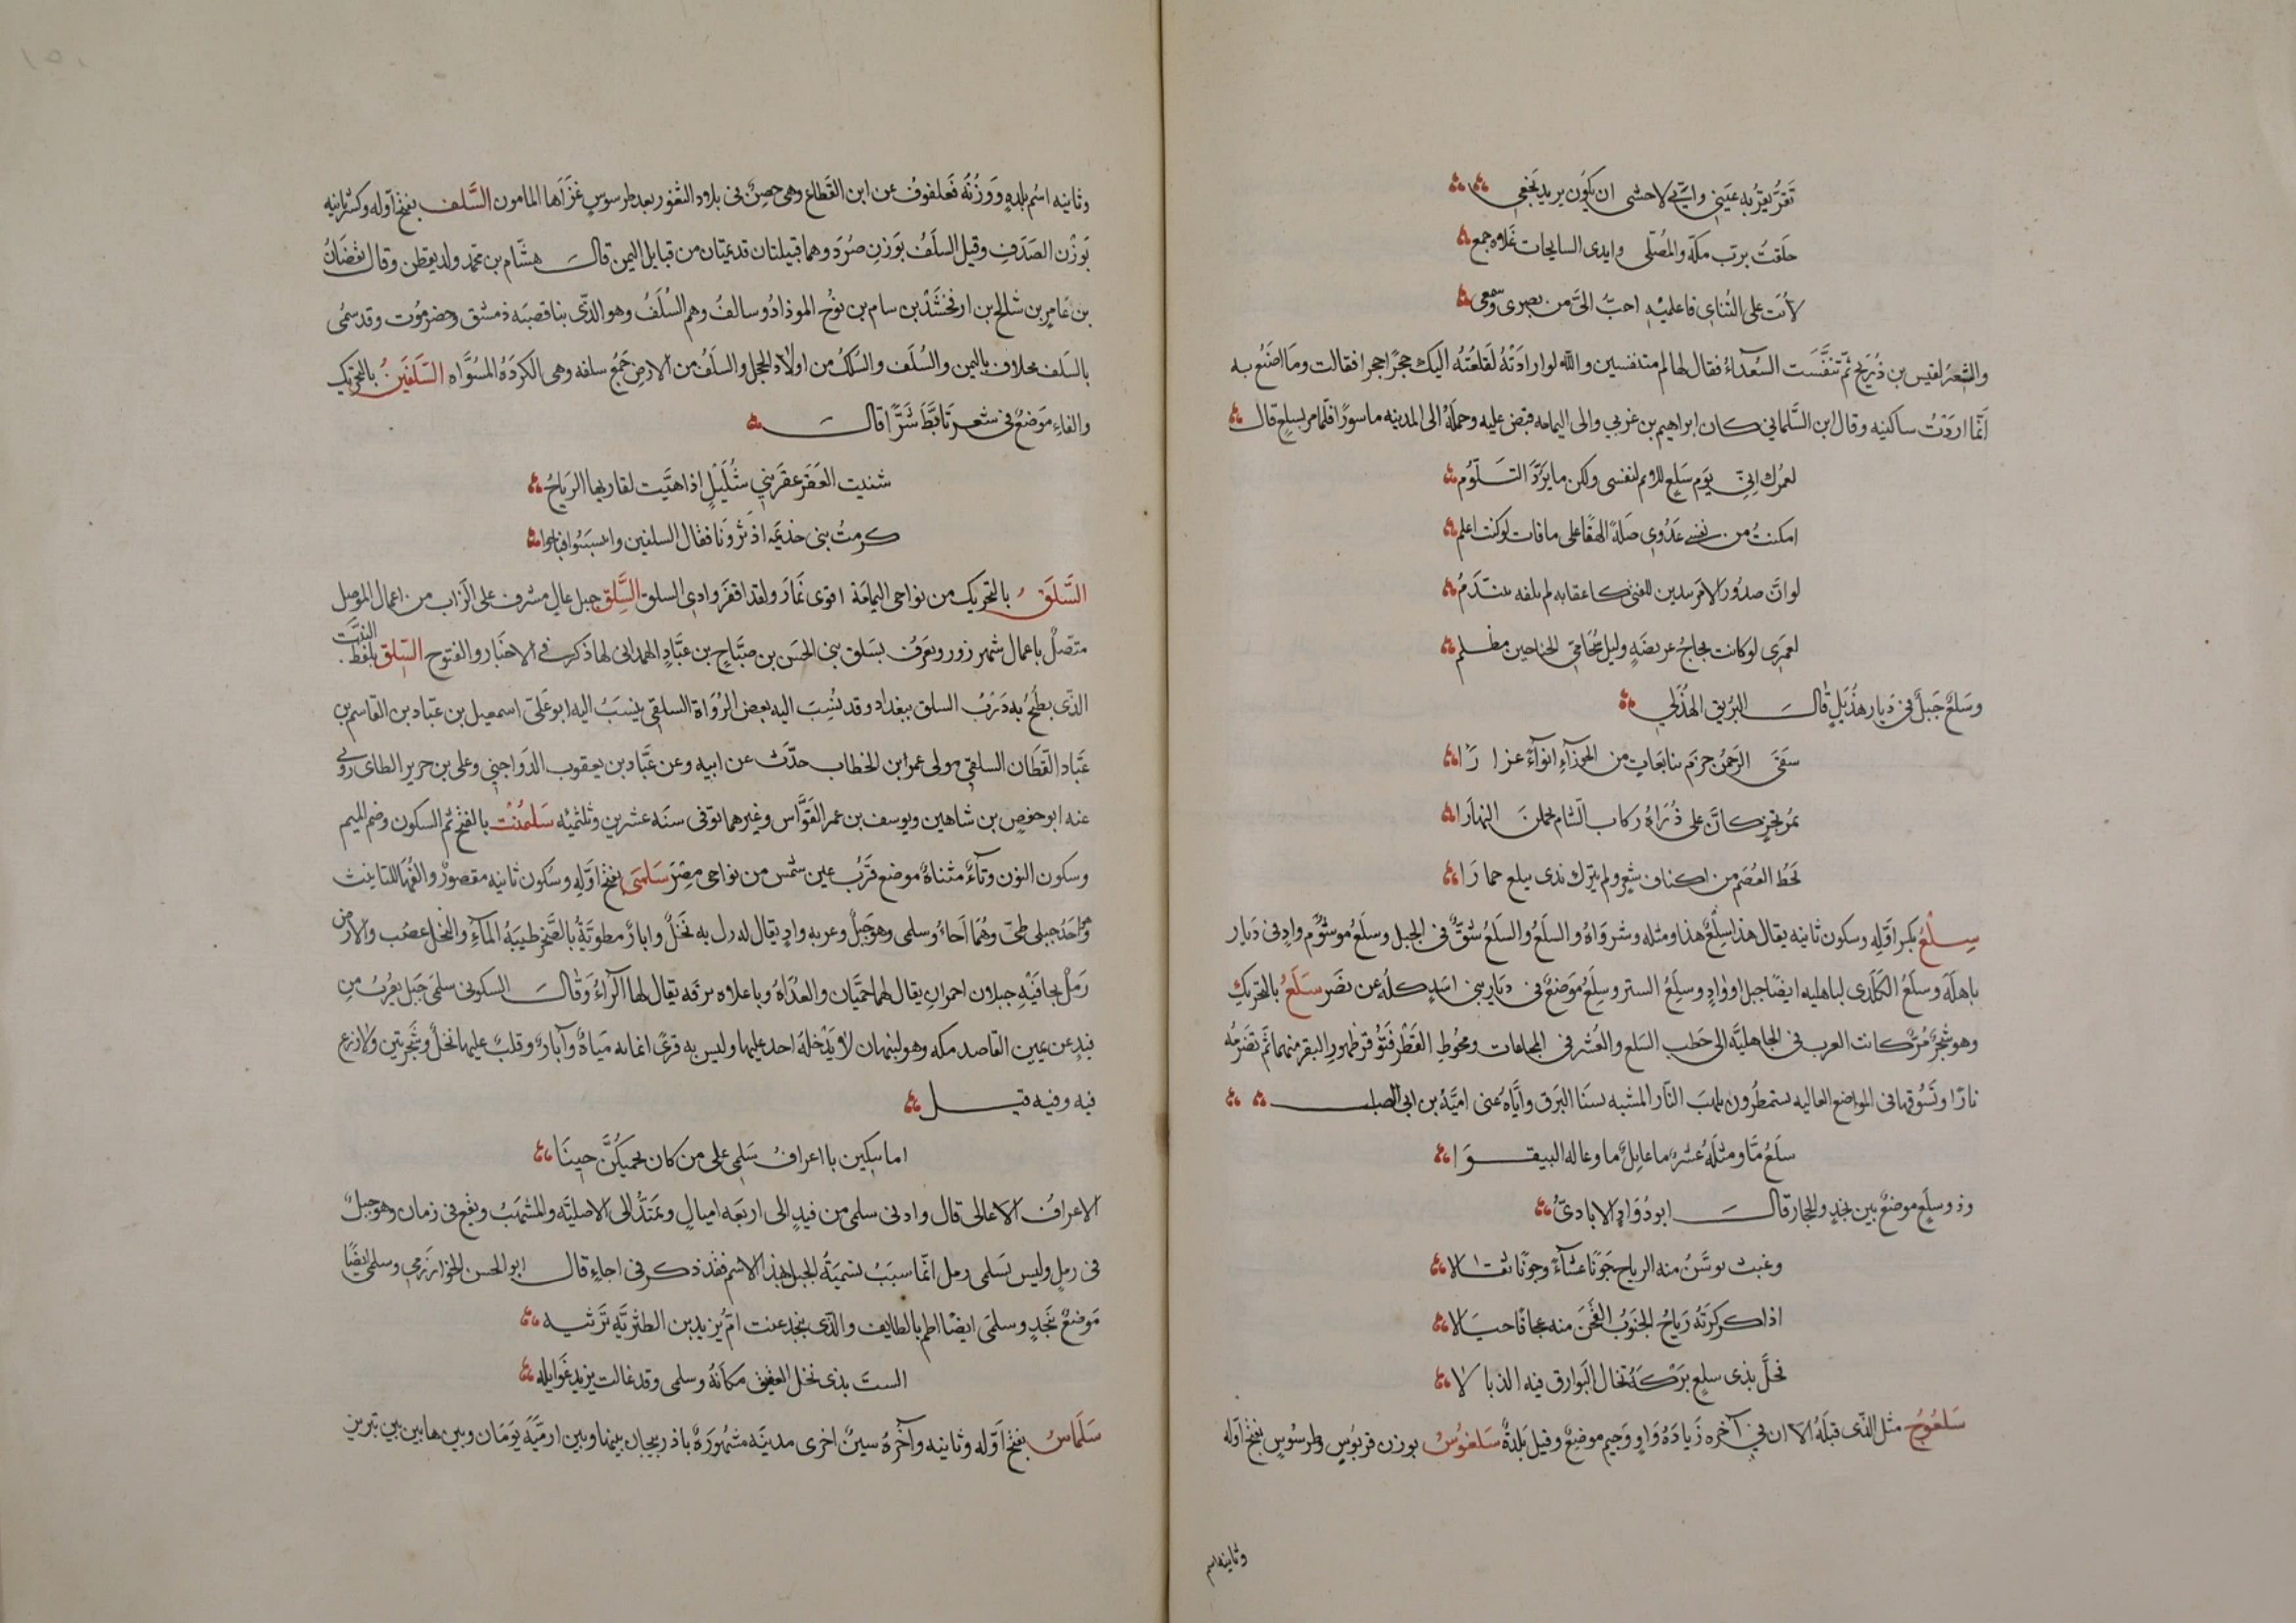 تقر بقربه عيني واني لاخشى ان يكون يريد فجعي
حلفت برب مكة والمصلى وايدى السابحات غداه جمع
لانت على التناي فاعلميه احب الىَّ من بصرى وسمعى
والشعر لقيس بن ذريح ثم تنفست الصعداء فقال لها لم متنفسين والله لو ارادته لقلعته اليك حجرًا حجرا فقالت وما اصنع به
انما اردت ساكنيه وقال ابن السلماني كان ابراهيم بن عربي والى اليمامه قبض عليه وحمله الى المدينه ماسورًا فلما مر بسلع قال
لعمرك اني يوم سلع للائم لنفسى ولكن ما يرد التلوم
امكنت من نفسى عدوي ضلة الهفا على ما فات لو كنت اعلم
لو ان صدور الامر يبدين للفتى كاعقابه لم تلفه يتندم
لعمرى لو كانت فجاج عريضة وليل سخامي الجناحين مظلم
وسلع جبل فى ديار هذيل قال البريق الهذلي
سقى الرحمن حزم ينابعات من الجوزآء انوآءً غزارًا
بمرتجز كان على ذراه ركاب الشام يحملن النهارا
تحط العصم من اكناف شعر ولم يترك بذى سلع حمارا
سِلْع بكسر اوله وسكون ثانيه يقال هذا سلع هذا ومثله وشرواه والسلع والسلع شق فى الجبل وسلع موشوم واد فى ديار
باهله وسلع الكلدى لباهليه ايضا جبل او واد وسلع الستر وسلع موضع فى ديار بنى اسد كله عن نصر سَلَع بالتحريك
وهو شجر مر كانت العرب فى الجاهلية الى حطب السلع والعشر فى المجاعات وقحوط القطر فتوقر ظهور البقر منهما ثم تضرمه
نارًا وتسوقها فى المواضع العاليه يستمطرون بلهب النار المشبه بسنا البرق واياه عنى امية بن ابى الصلت
سلع ما ومثله عشر ما عايل ما وعاله البيقورا
وذو سلع موضع بين نجد والحجاز قال ابو دُوَاد الايادى
وغيث توسن منه الرياح جونًا عشآءً وجونًا ثقالا
اذا كركرته رياح الجنوب القحن منه عجافًا حيالا
فحل بذى سلع بركه تخال البوارق فيه الذبالا
سلعوج مثل الذى قبله الا ان في آخره زيادة واو وجيم موضع وقيل بلدة سلعوس بوزن قربوس وطرسوس بفتح اوله
وثانيه اسم
وثانيه اسم بلدة ووزنه فعلفول عن ابن القطاع وهى حصن فى بلاد الثغور بعد طرسوس غزاها المامون السَّلَف بفتح اوله وكسر ثانيه
بوزن الصدف وقيل السلف بوزن صرد وهما قبيلتان قديمتان من قبايل اليمن قال هشام بن محمد ولد يقطن وقال يقضان
بن عامر بن شالخ بن ارفخشذ بن سام بن نوح الموذاد وسالف وهم السلف وهو الذى بنا قصبه دمشق وحضرموت وقد سمى
بالسلف مخلاف باليمن والسلف والسلك من اولاد الحجل والسلف من الارض جمع سلفه وهى الكردة المسواه السَّلَفَين بالتحريك
والفاء موضع فى شعر تابط شرًّا قال
شنيت العقر عقر بني شليل اذا هبت لقاربها الرياح
كرهت بنى خذيمه اذ ثرونا فقال السلفين وانتسبوا فباحوا
السَّلَق بالتحريك من نواحى اليمامة اقوى نمار ولقد اقفر وادى السلق السَّلِق جبل عال مشرف على الزاب من اعمال الموصل
متصل باعمال شهرزور ويعرف بسلق بنى الحسن بن صباح بن عباد الهمدانى لها ذكر في الاخبار والفتوح السِّلق بلفظ النبت
الذى يطبخ به درب السلق ببغداد وقد نسب اليه بعض الرواة السلقى ينسب اليه ابو على اسمعيل بن عباد بن القاسم بن
عباد القطان السلقى مولى عمر ابن الخطاب حدث عن ابيه وعن عباد بن يعقوب الدواجني وعلى بن حرير الطاى روى
عنه ابو حفص بن شاهين ويوسف بن عمر القواس وغيرهما توفى سنه عشرين وثلثميه سلمنت بالفتح ثم السكون وضم الميم
وسكون النون وتآء مثناة موضع قرب عين شمس من نواحى مصر سلمى بفتح اوله وسكون ثانيه مقصور والفها للتانيث
وهو احد جبلى طى وهما اجاء وسلمى وهو جبل وعر به واد يقال له رل به نخل وابار مطويّة بالصخر طيبة المآء والنخل عصب والارض
رمل بحافتيه جبلان احمران يقال لهما حميان والغداة وباعلاه برقه يقال لها الرآء وقال السكونى سلمى جبل يقرب من
فيد عن يمين القاصد مكه وهو لبنهان لا يدخله احد عليها وليس به قرى انما به مياه وآبار وقلب عليها نخل وشجر تين ولا زرع
فيه وفيه قيل
اما سكين با اعراف سلمى على من كان يحميكن حينا
الاعراف الاعالى قال وادنى سلمى من فيد الى اربعه اميال ويمتد الى الاصليّه والمشهب ويقع فى زمان وهو جبل
فى رمل وليس بسلمى رمل انما سبب تسمية الجبل بهذا الاسم فقد ذكر فى اجاء قال ابو الحسن الخوارزمى وسلمى ايضًا
موضع بنجد وسلمى ايضا اطم بالطايف والذى بنجد عنت ام يزيد بن الطثرية ترثيه
الست بذى نخل العقيق مكانه وسلمى وقد غالت يزيد غوايله
سَلَمَاس بفتح اوله وثانيه وآخره سين اخرى مدينه مشهورة باذربيجان بينها وبين ارمية يومان وبينها بين تبريز